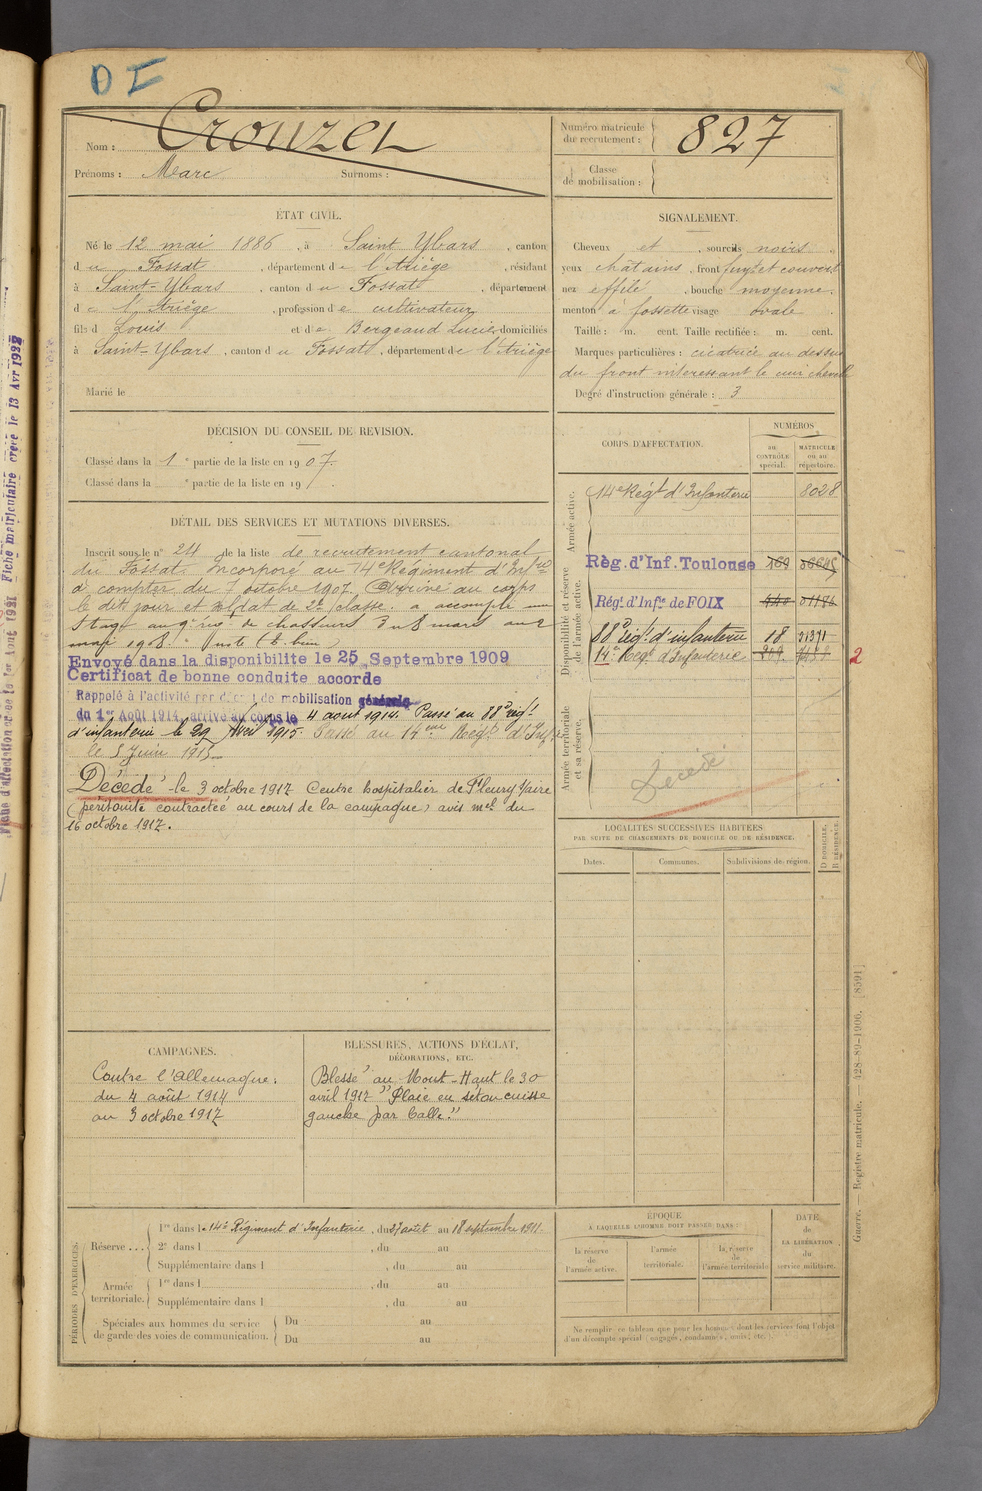 Nom : Crouzet
Prénoms : Marc Surnoms :
Numéro matricule du recrutement : 827
Classe de mobilisation :
ÉTAT CIVIL.
Né le 12 mai 1886, à Saint Ybars, canton
du Fossat, département de l'Ariège, résidant
à Saint-Ybars, canton du Fossat, département
de l'Ariège, profession de cultivateur
fils de Louis et de Bergeaud Lucie, domiciliés
à Saint-Ybars, canton du Fossat, département de l'Ariège
Marié le
SIGNALEMENT.
Cheveux et, sourcils noirs,
yeux châtains, front fuyt et couvert
nez effilé, bouche moyenne.
menton à fossette visage ovale
Taille : m. cent. Taille rectifiée : m. cent.
Marques particulières : cicatrice au dessus
du front intéressant le cuir chevelu
Degré d'instruction générale : 3
DÉCISION DU CONSEIL DE REVISION.
Classé dans la 1e partie de la liste en 1907.
Classé dans la e partie de la liste en 19
DÉTAIL DES SERVICES ET MUTATIONS DIVERSES.
Inscrit sous le n° 24 de la liste de recrutement cantonal
du Fossat. Incorporé au 14e Régiment d'Infrie
à compter du 7 octobre 1907. Arrivé au corps
le dit jour et soldat de 2e classe. a accompli un
stage au 9e de chasseurs du 8 mars au 2
mai 1908.
Envoyé dans la disponibilite le 25 Septembre 1909
Certificat de bonne conduite accorde
Rappelé à l'activité par de mobilisation générale
du 1er Août 1914, arrivé au corps le 4 aout 1914. Passé au 88e régt
d'infanterie le 29 Avril 1915. Passé au 14eme Régt d'Infie
le 5 Juin 1915
Décédé le 3 octobre 1917 Centre hospitalier de Fleury s/aire
(péritonite contractée au cours de la campagne) avis mel du
16 octobre 1917.
CORPS D'AFFECTATION.
NUMÉROS
AU CONTRÔLE spécial.
MATRICULE OU AU répertoire.
Armée active.
14e Régt d'Infanterie 8028
Disponibilité et réserve de l'armée active.
Règ. d'Inf. Toulouse 169
Régt d'Infie de FOIX
88e régt d'infanterie 18
14e Régt d'Infanterie
2
Armée territoriale et sa réserve.
Décédé
LOCALITÉS SUCCESSIVES HABITÉES
PAR SUITE DE CHANGEMENTS DE DOMICILE OU DE RÉSIDENCE.
Dates. Communes. Subdivisions de région. D DOMICILE, R RÉSIDENCE.
CAMPAGNES.
Contre l'Allemagne :
du 4 août 1914
au 3 octobre 1917
BLESSURES, ACTIONS D'ÉCLAT,
DÉCORATIONS, ETC.
Blessé au Mont-Haut le 30
avril 1917 "Plaie en séton cuisse
gauche par balle."
PÉRIODES D'EXERCICES.
Réserve...
1re dans le 14e Régiment d'Infanterie, du 27 août au 18 septembre 1911.
2e dans l , du au
Supplémentaire dans l , du au
Armée territoriale.
1re dans l , du au
Supplémentaire dans l , du au
Spéciales aux hommes du service de garde des voies de communication.
Du au
Du au
ÉPOQUE
À LAQUELLE L'HOMME DOIT PASSER DANS :
la réserve de l'armée active.
l'armée territoriale.
la réserve de l'armée territoriale
DATE de LA LIBÉRATION du service militaire.
Ne remplir ce tableau que pour les hommes dont les services font l'objet
d'un décompte spécial (engagés, condamnés, omis, etc.).
Guerre. — Registre matricule. — 428-89-1906. [8591]
Fiche matriculaire créée le 13 Avr 1922